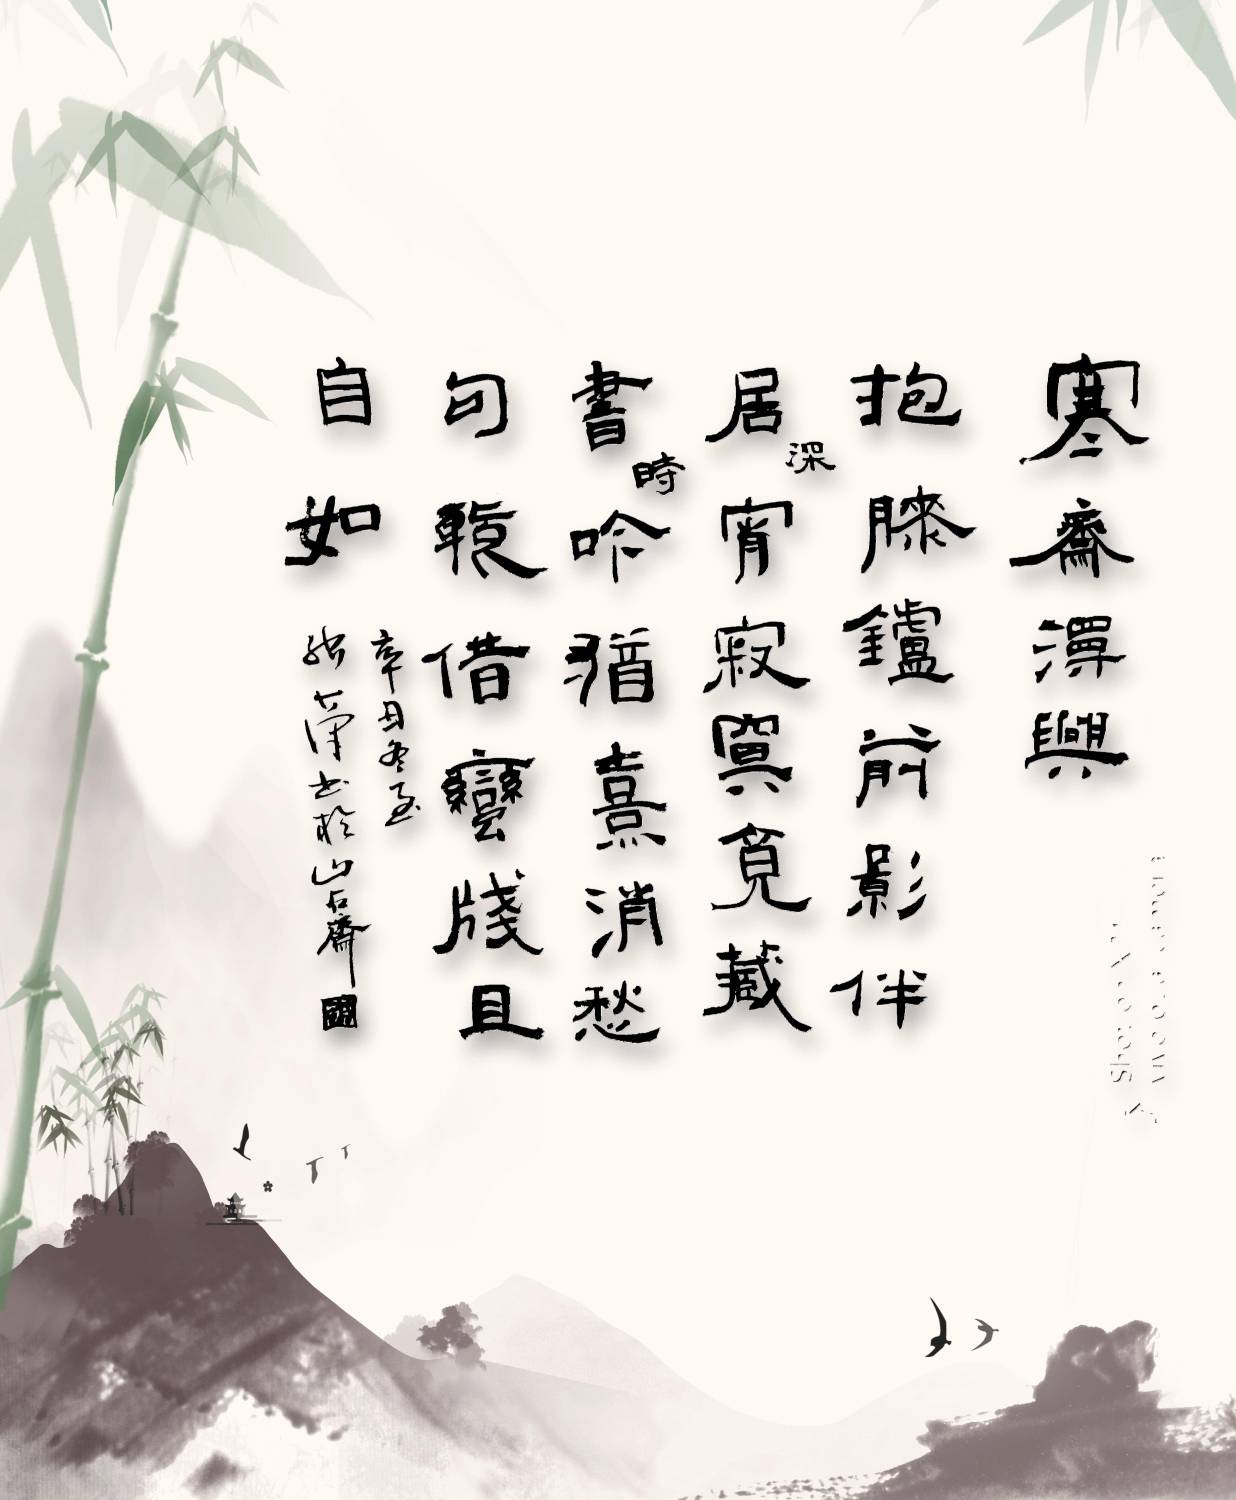 寒齋漫興
抱膝鑪前影伴
居深宵寂寞覓藏
書時吟猶熹消愁
句輒借蠻牋且
自如
辛丑冬至
书於山石齋